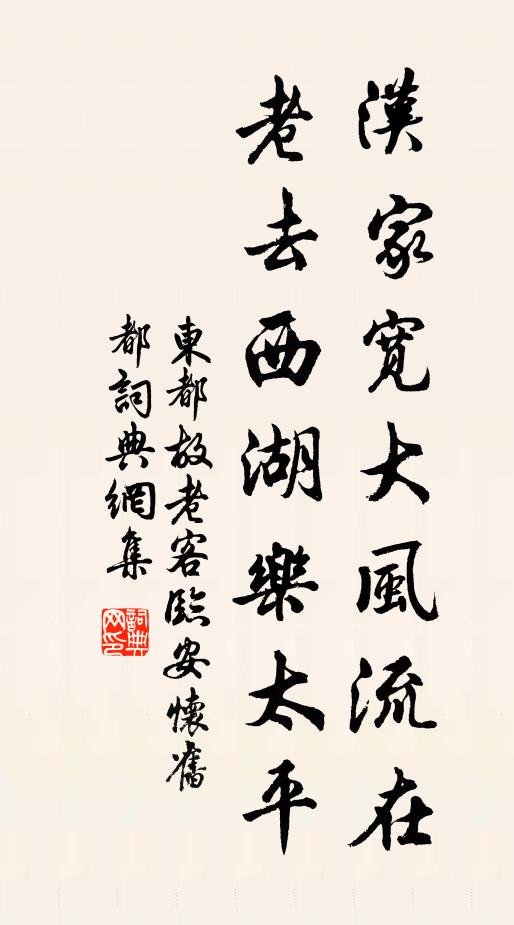 漢家寬大風流在
老去西湖樂太平
東都故老客臨安懷舊
都詞典網集
詞典網印